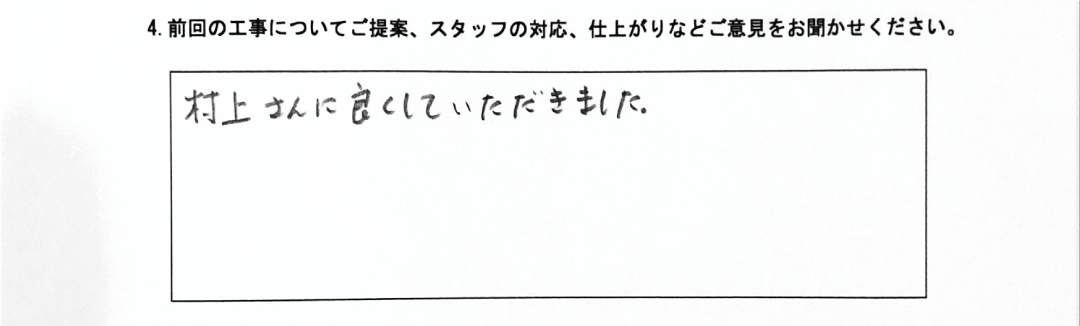 4. 前回の工事についてご提案、スタッフの対応、仕上がりなどご意見をお聞かせください。
村上さんに良くしていただきました。